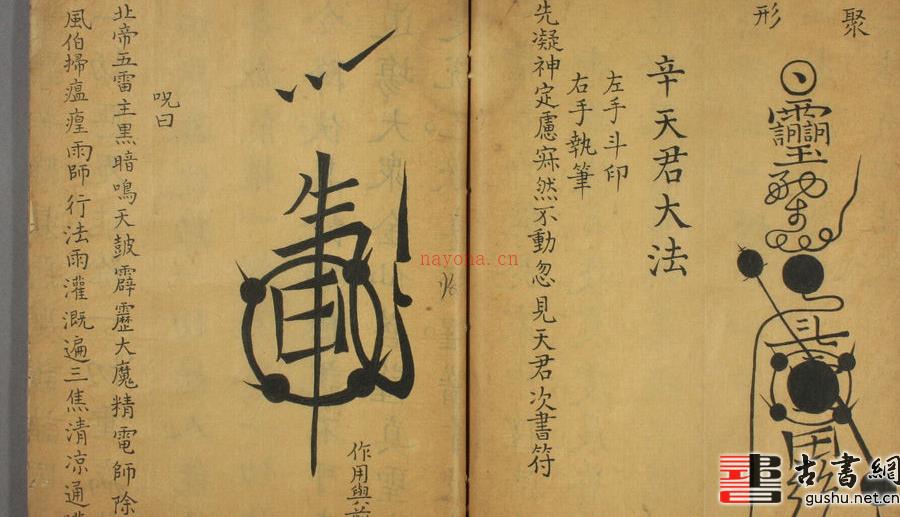 聚
形
辛天君大法
左手斗印
右手執筆
先凝神定慮寂然不動忽見天君次書符
作用與前
咒曰
北帝五雷主黑暗鳴天鼓霹靂大魔精電師除
風伯掃瘟㾮雨師行法雨灌溉遍三焦清凉通
nayona.cn
古書網
gushu.net.cn